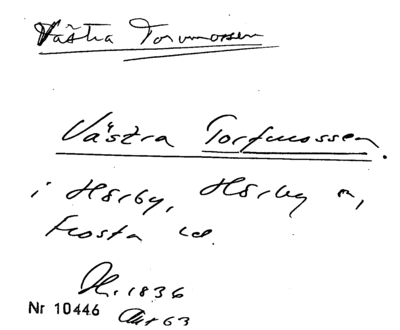 Västra Torvmossen
Västra Torfmossen.
i Hörby, Hörby sn,
Frosta hd.
1836
Nr 10446
63